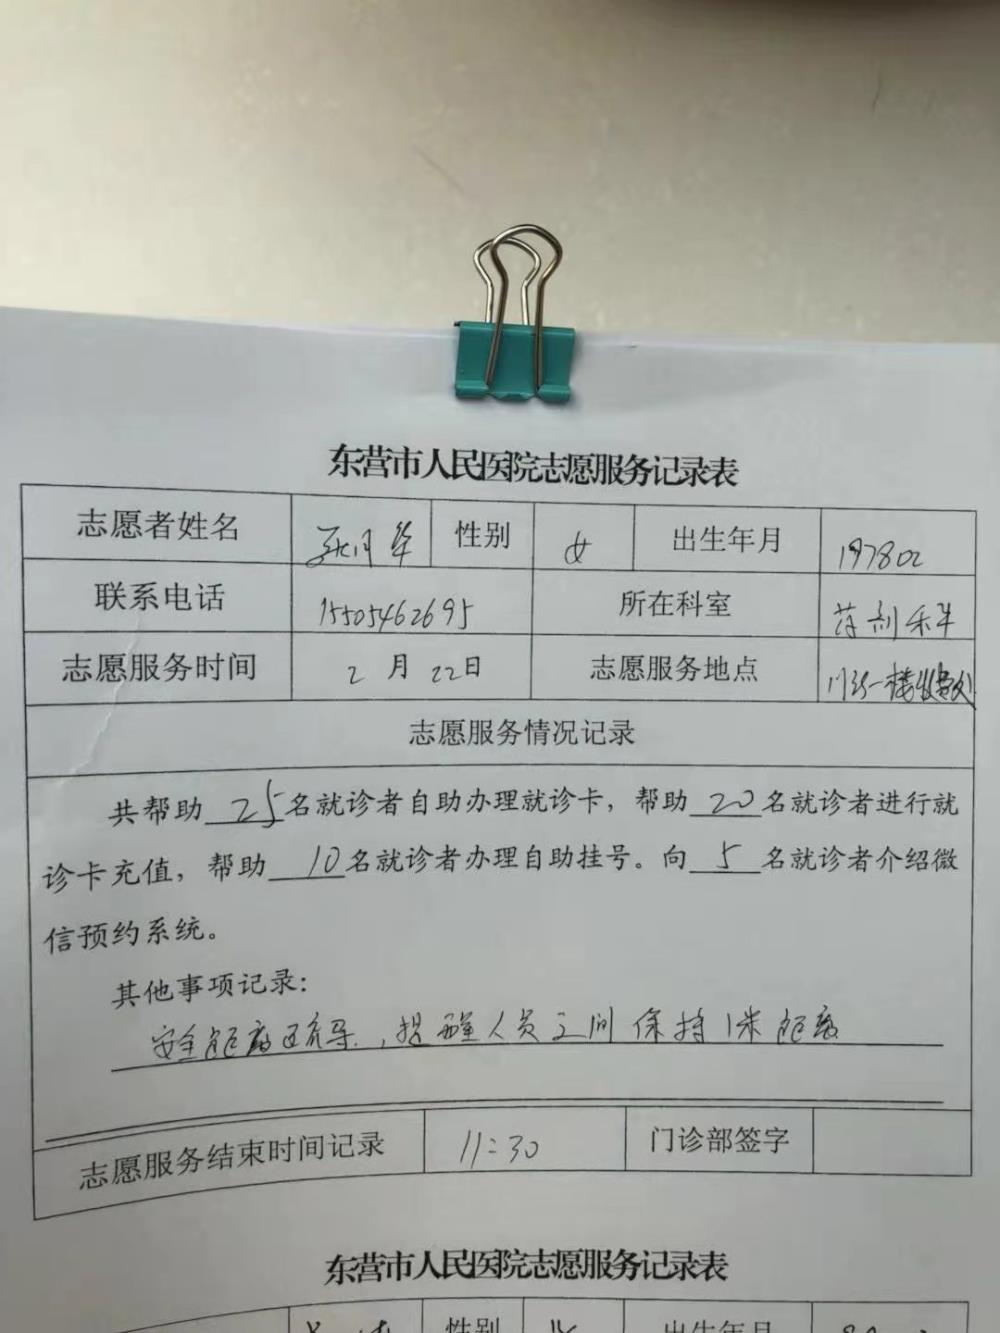 东营市人民医院志愿服务记录表
志愿者姓名 月华 性别 女 出生年月 197802
联系电话 15505462695 所在科室 药剂科
志愿服务时间 2月22日 志愿服务地点 门诊一楼收费处
志愿服务情况记录
共帮助 25 名就诊者自助办理就诊卡，帮助 20 名就诊者进行就
诊卡充值，帮助 10 名就诊者办理自助挂号。向 5 名就诊者介绍微
信预约系统。
其他事项记录：
安全距离疏导，提醒人员之间保持1米距离
志愿服务结束时间记录 11:30 门诊部签字
东营市人民医院志愿服务记录表
性别 出生年月